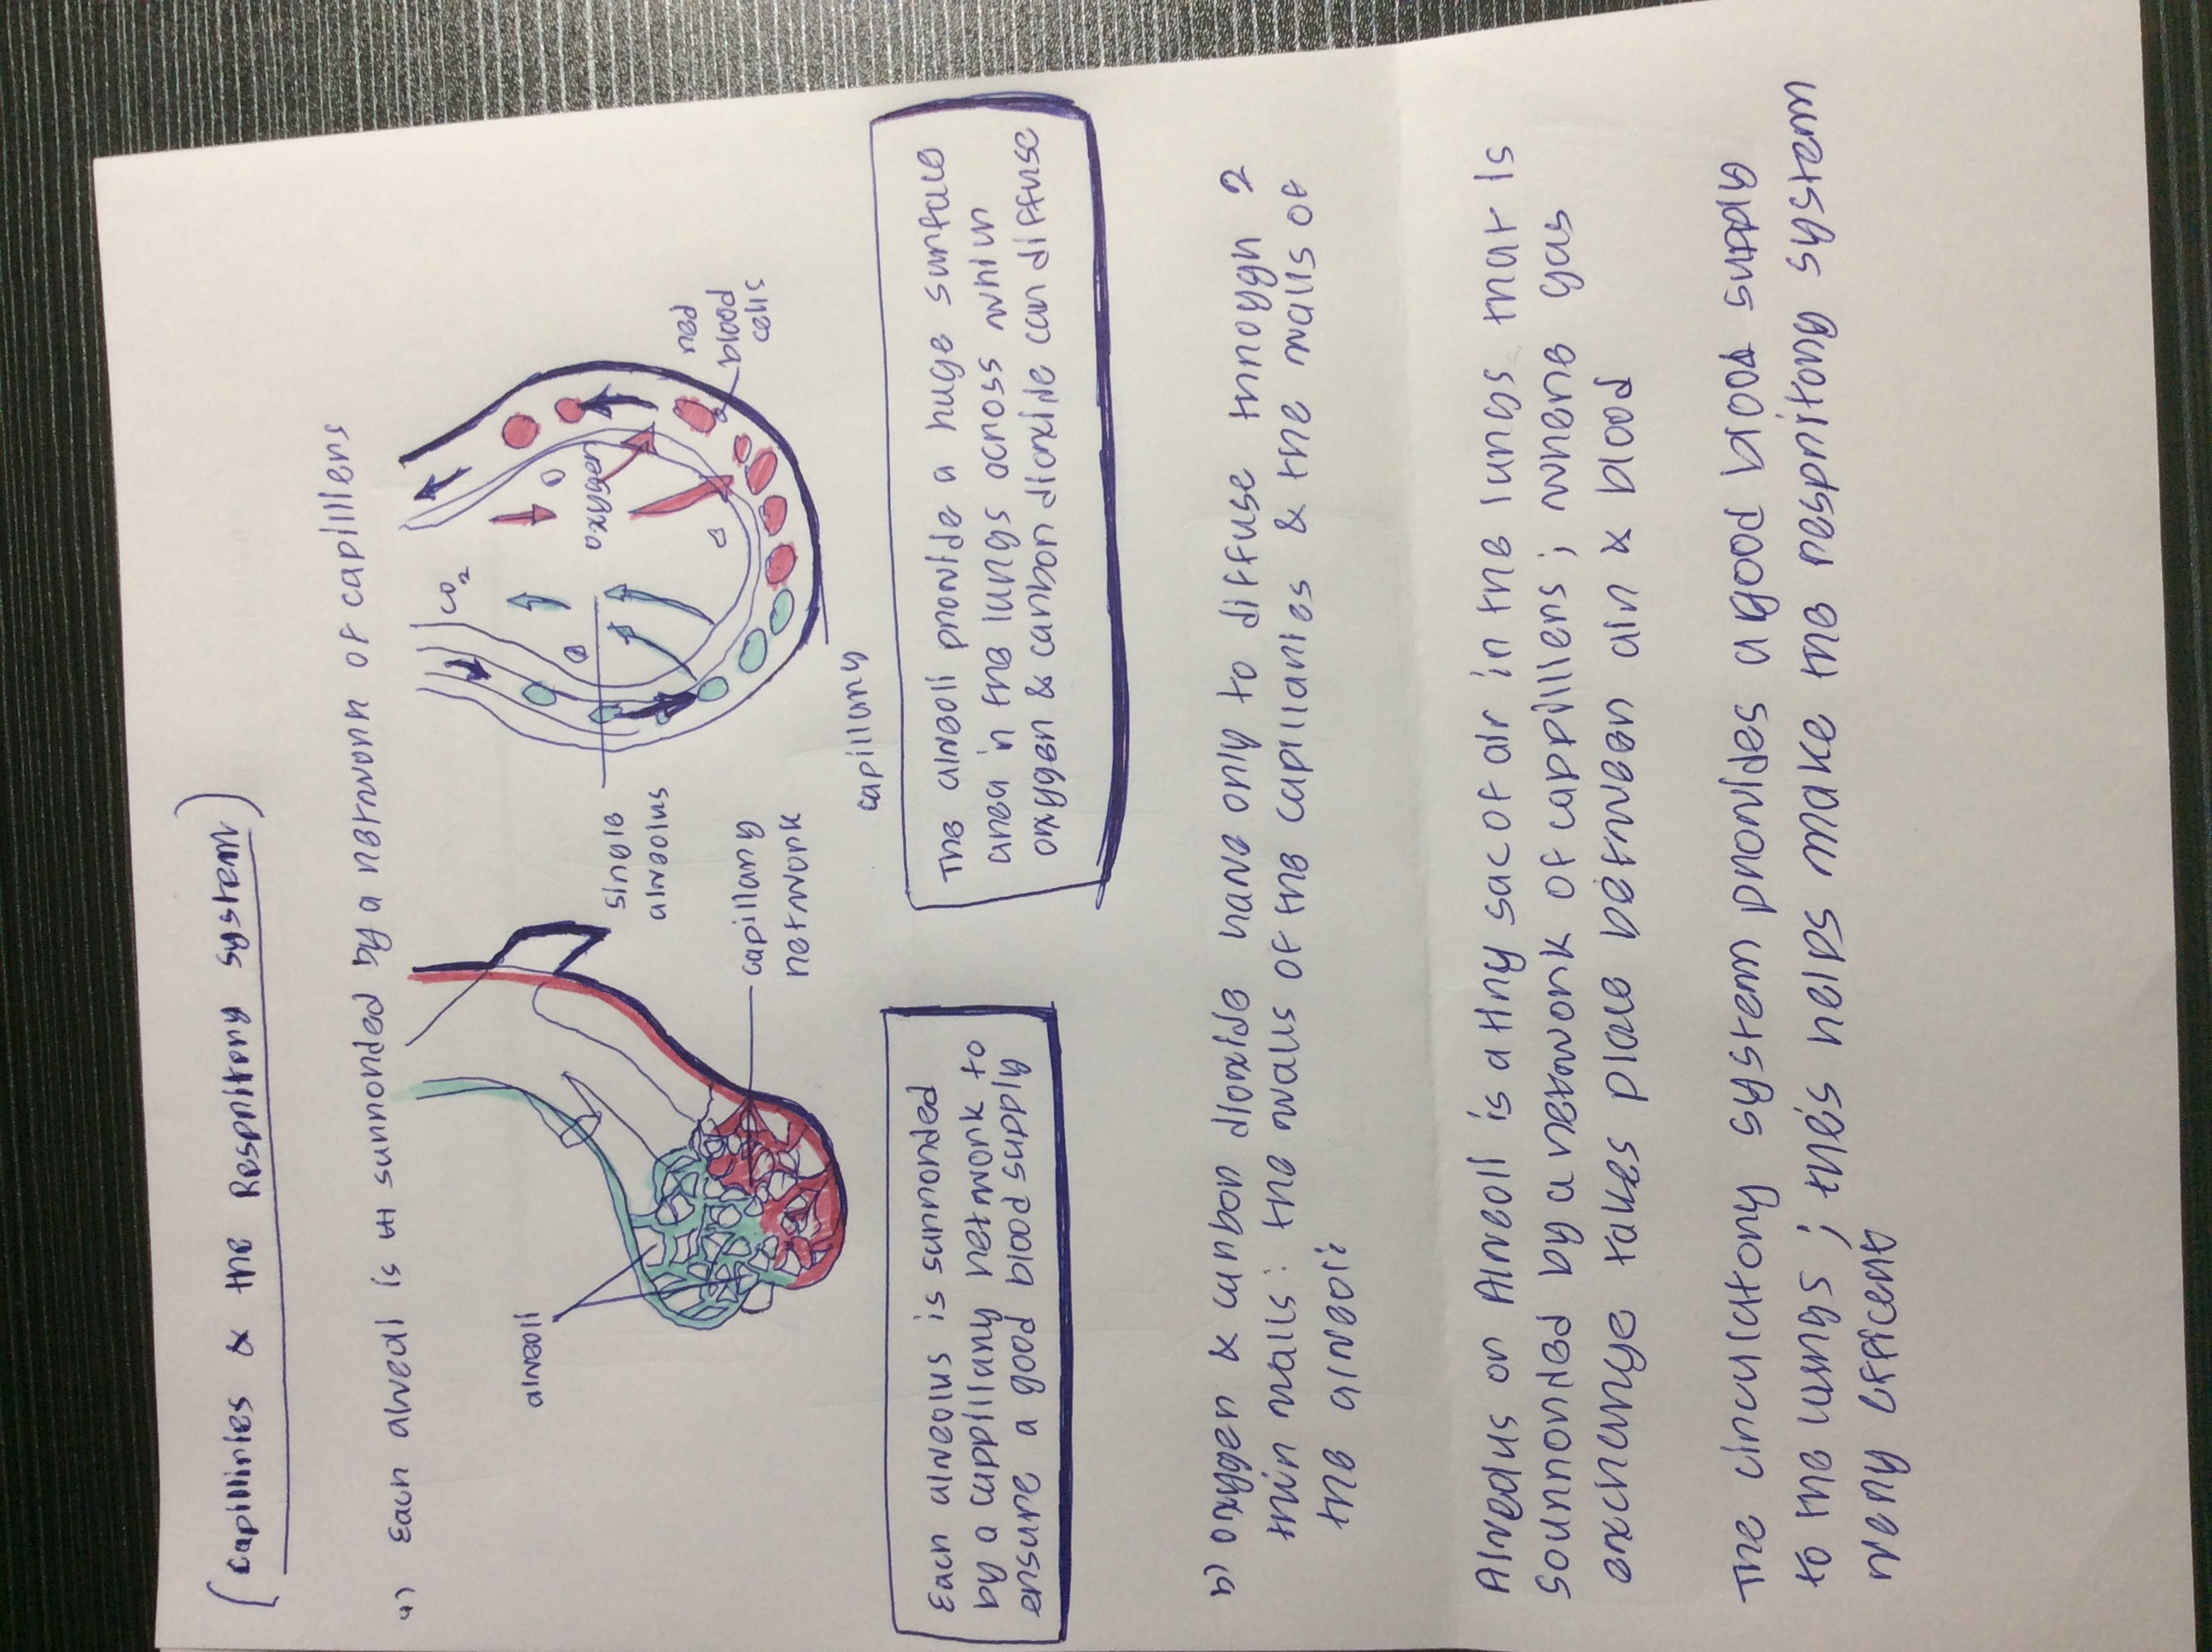 (Capillinies & the Respnitrony system)
a) Each alveal is surronded by a network of capilliers
CO2
oxygen
red
blood
cells
single
alveolus
capillary
alveoli
capillary
network
Each alveolus is surronded
by a cappillary network to
ensure a good blood supply
The alveoli provide a huge surface
area in the lungs across which
oxygen & carbon dioxide can diffuse
b) oxygen & carbon dioxide have only to diffuse through 2
thin walls: the walls of the capillaries & the walls of
the alveoli:
Alveolus or Alveoli is a tiny sac of air in the lungs that is
sourronded by a network of cappilliers ; where gas
exchange takes place between air & blood
The circulatory system provides a good blood supply
to the lungs ; the's helps make the respritory system
very efficent